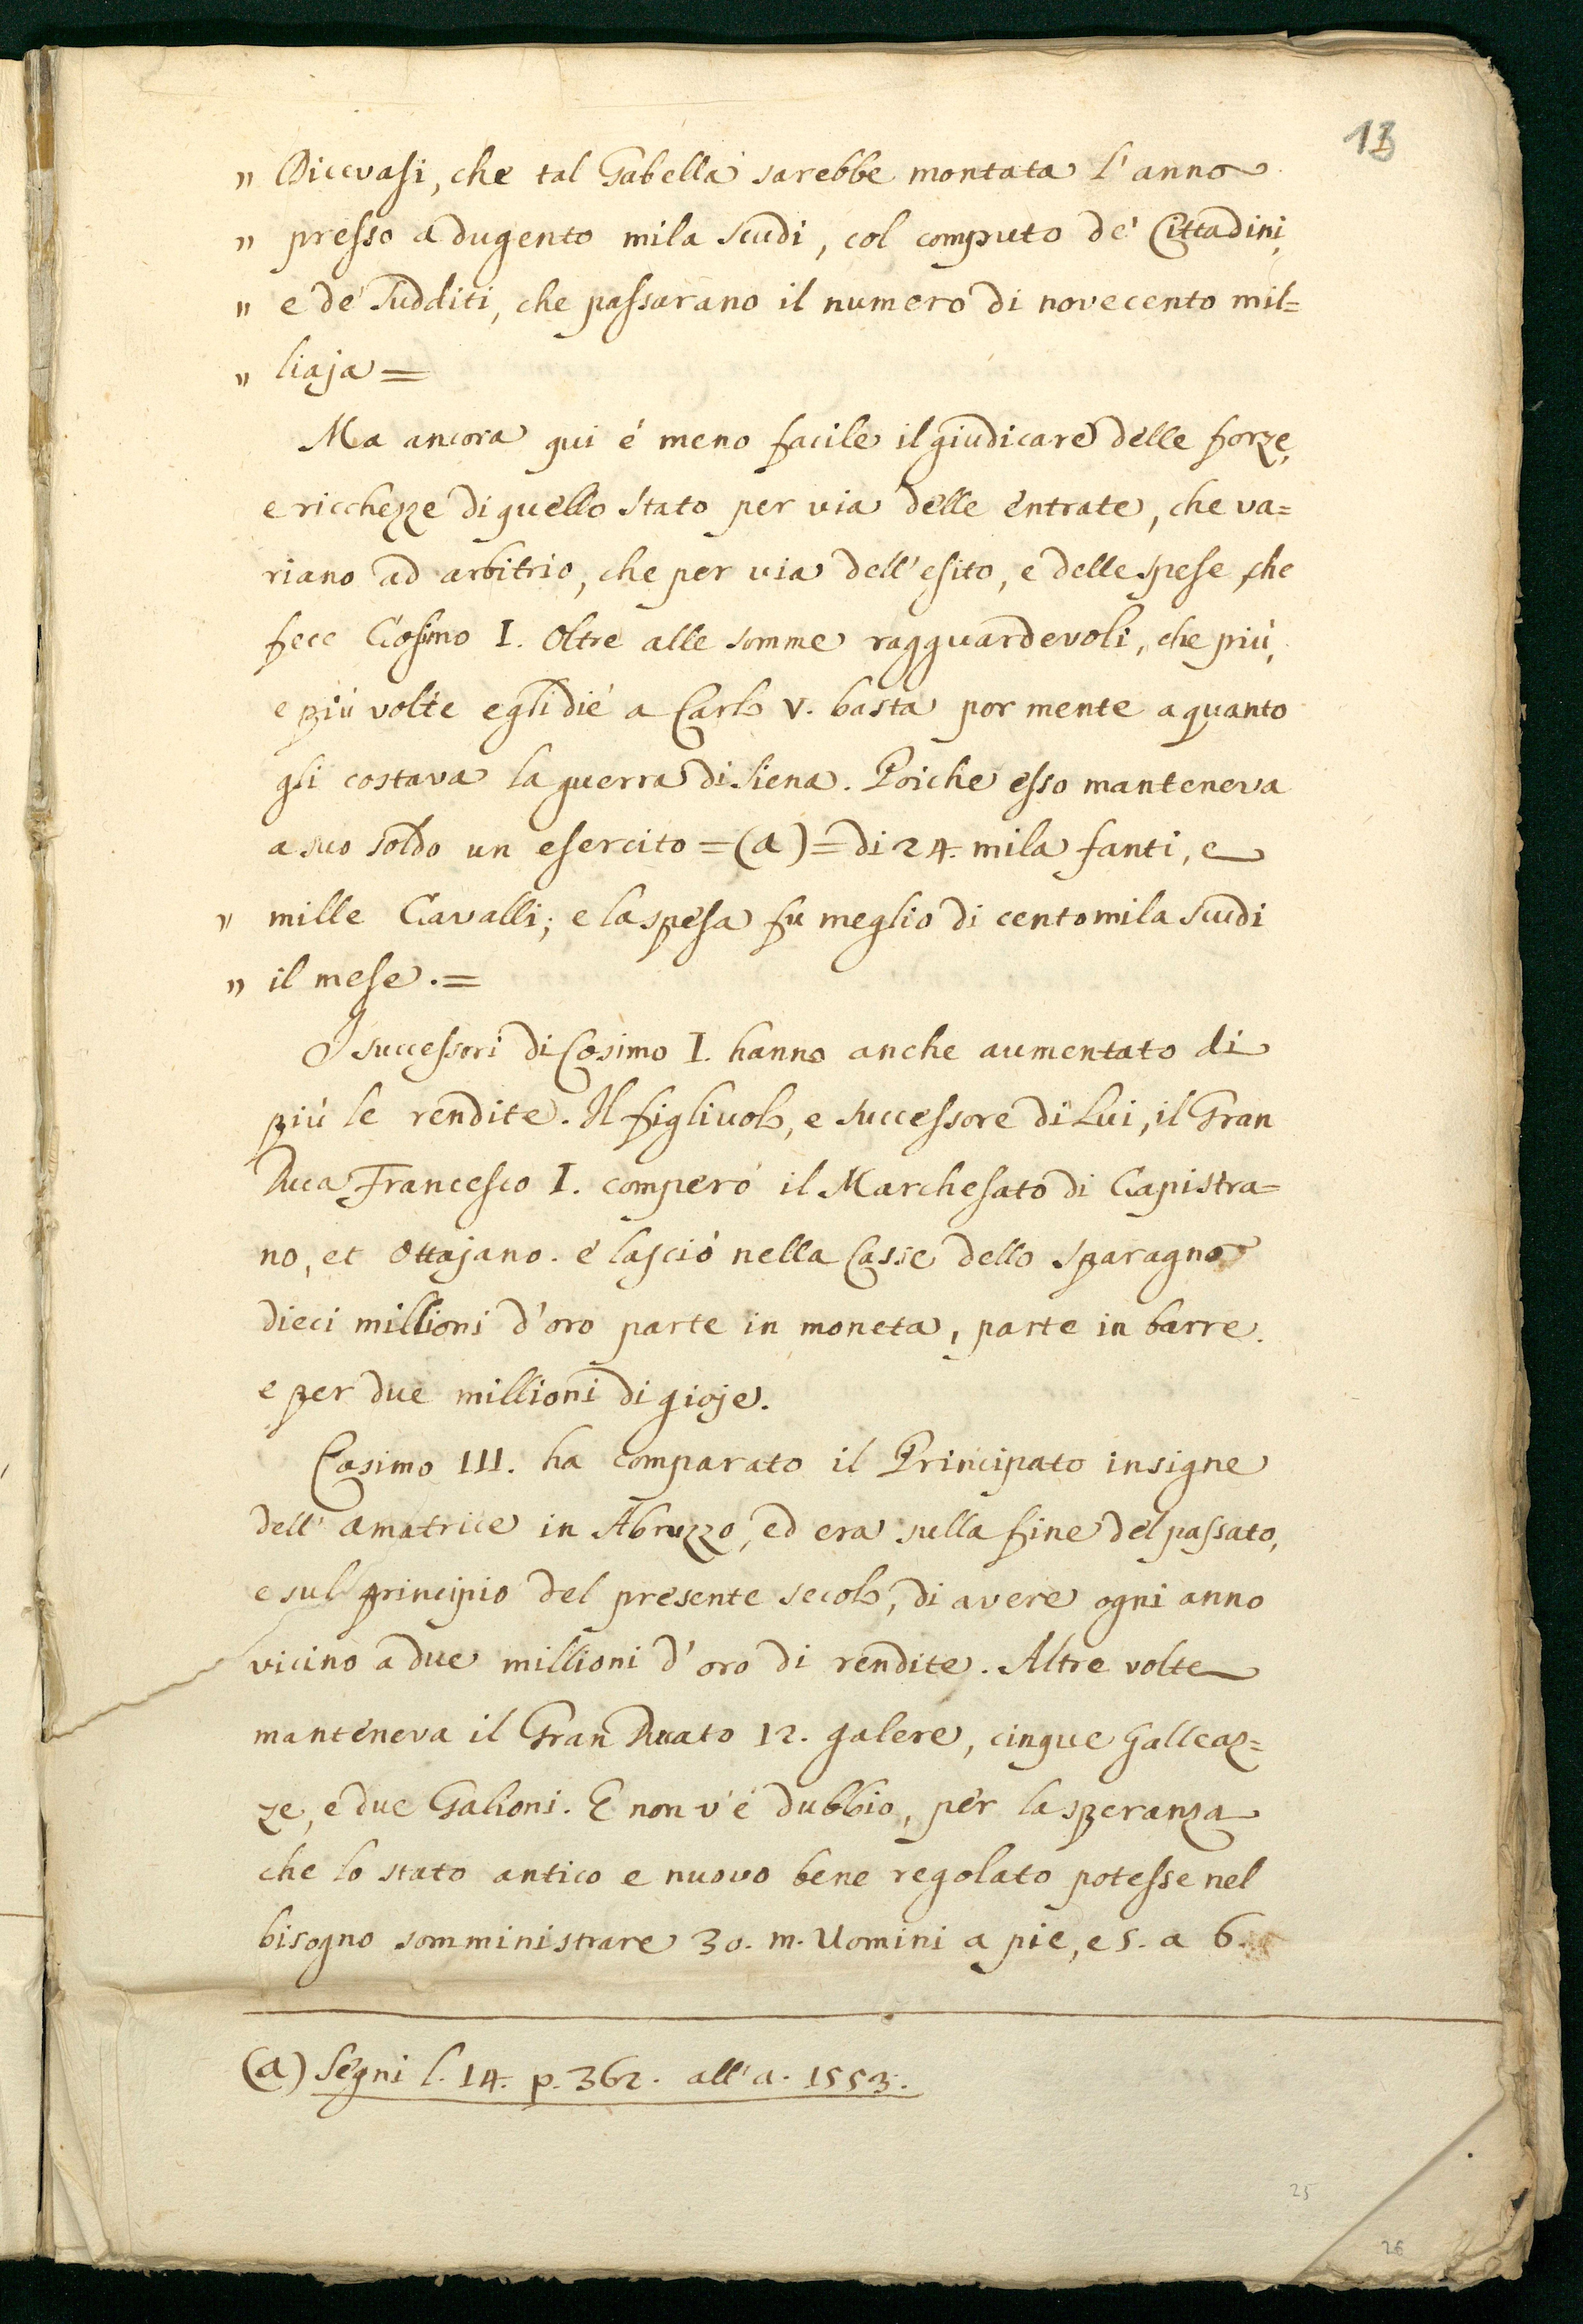 13
" Dicevasi, che tal Gabella sarebbe montata l'anno
" presso a dugento mila scudi, col computo de' Cittadini,
" e de' Sudditi, che passarano il numero di novecento mil=
" liaja=
Ma ancora qui é meno facile il giudicare delle forze,
e ricchezze di quello Stato per via delle entrate, che va=
riano ad arbitrio, che per via dell'esito, e delle spese, che
fece Cosimo I. Oltre alle somme ragguardevoli, che piú,
e piú volte egli dié a Carlo V. basta por mente a quanto
gli costava la guerra di Siena. Poiche esso manteneva
a suo soldo un esercito =(a)= di 24. mila fanti, e
" mille Cavalli; e la spesa fu meglio di centomila scudi
" il mese.=
I successori di Cosimo I. hanno anche aumentato di
piú le rendite. Il figliuolo, e successore di Lui, il Gran
Duca Francesco I. comperó il Marchesato di Capistra=
no, et Ottajano. e lasció nella Casse dello Sparagno
dieci millioni d'oro parte in moneta, parte in barre.
e per due millioni di gioje.
Cosimo III. ha comparato il Principato insigne
dell' amatrice in Abruzzo, ed era sulla fine del passato,
e sul principio del presente secolo, di avere ogni anno
vicino a due millioni d'oro di rendite. Altre volte
manteneva il Gran Ducato 12. galere, cinque Galleaz=
ze, e due Galioni. E non v'é dubbio, per la speranza
che lo stato antico e nuovo bene regolato potesse nel
bisogno somministrare 30. m. Uomini a pie, e 5. a 6.
(a) Segni l. 14. p. 362. all'a. 1553.
25
26